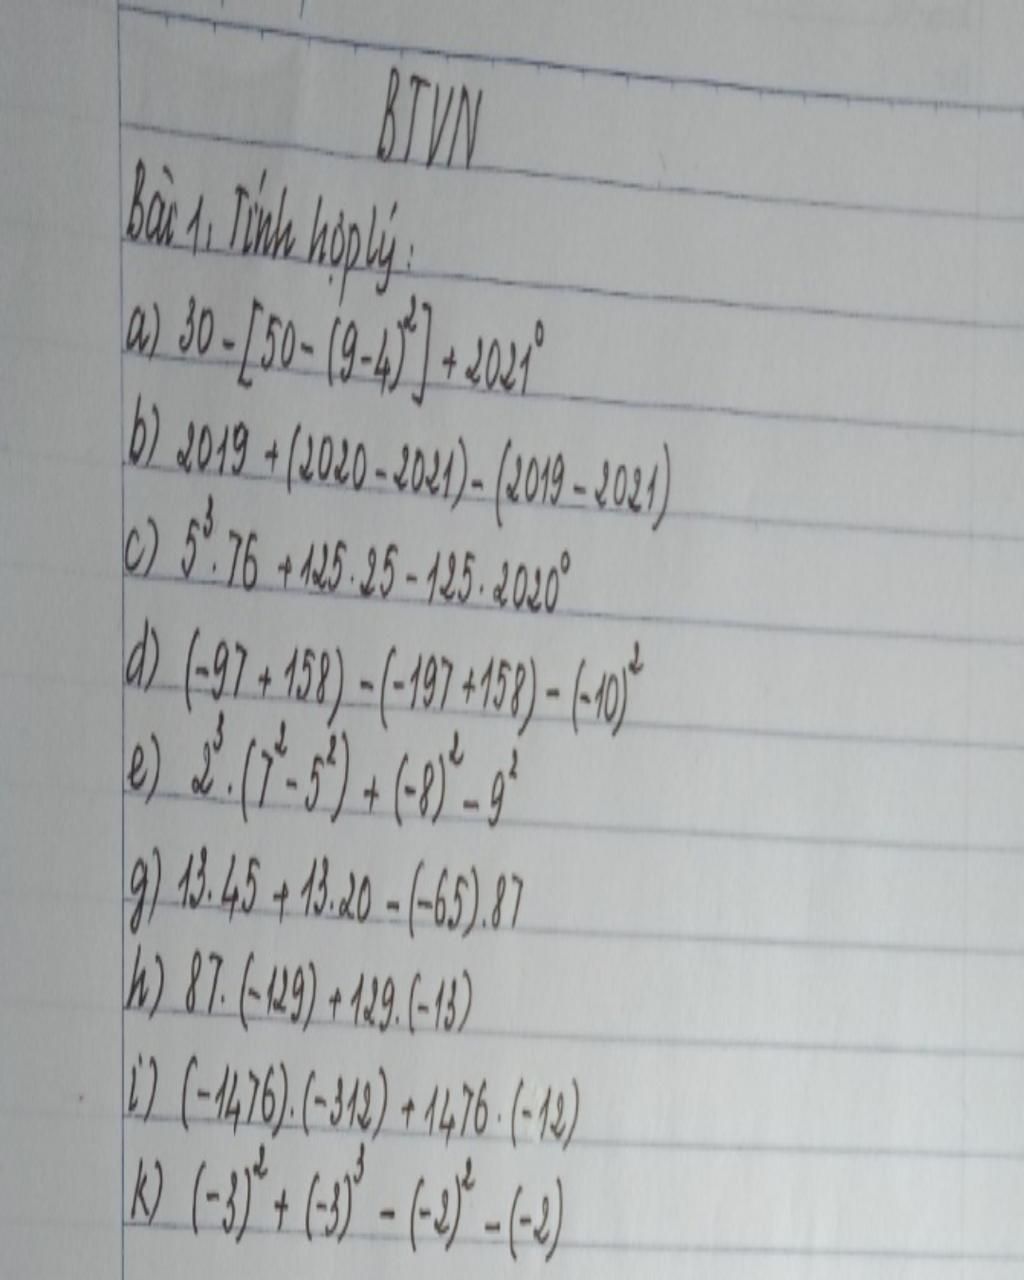 BTVN
Bài 1, Tính hợp lý:
a) 30 - [50 - (9-4)²] + 2021⁰
b) 2019 + (2020 - 2021) - (2019 - 2021)
c) 5³.76 + 125.25 - 125.2020⁰
d) (-97 + 158) - (-197 + 158) - (-10)²
e) 2³.(7² - 5²) + (-8)² - 9²
g) 13.45 + 13.20 - (-65).87
h) 87.(-129) + 129.(-13)
i) (-1476).(-312) + 1476.(-12)
k) (-3)² + (-3)³ - (-2)² - (-2)